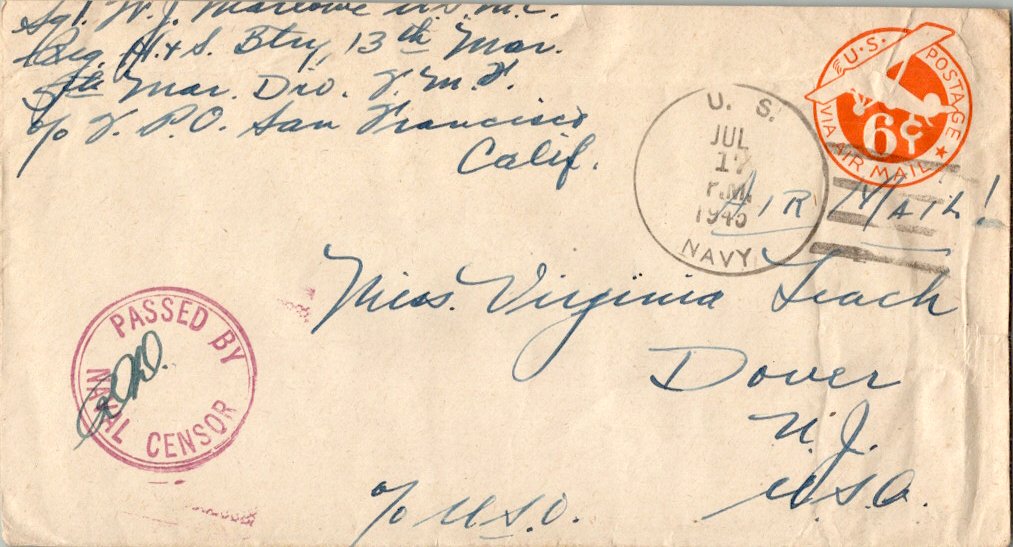 Sgt. W. J. Marlowe U.S.M.C.
H. & S. Btry, 13th Mar.
5th Mar. Div. F. M. F.
c/o F. P.O. San Francisco
Calif.
U.S. POSTAGE
6¢
VIA AIR MAIL
U. S.
JUL
17
P.M.
1945
NAVY
AIR MAIL!
Miss Virginia Leach
Dover
N.J.
U.S.A.
c/o U.S.O.
PASSED BY
NAVAL CENSOR